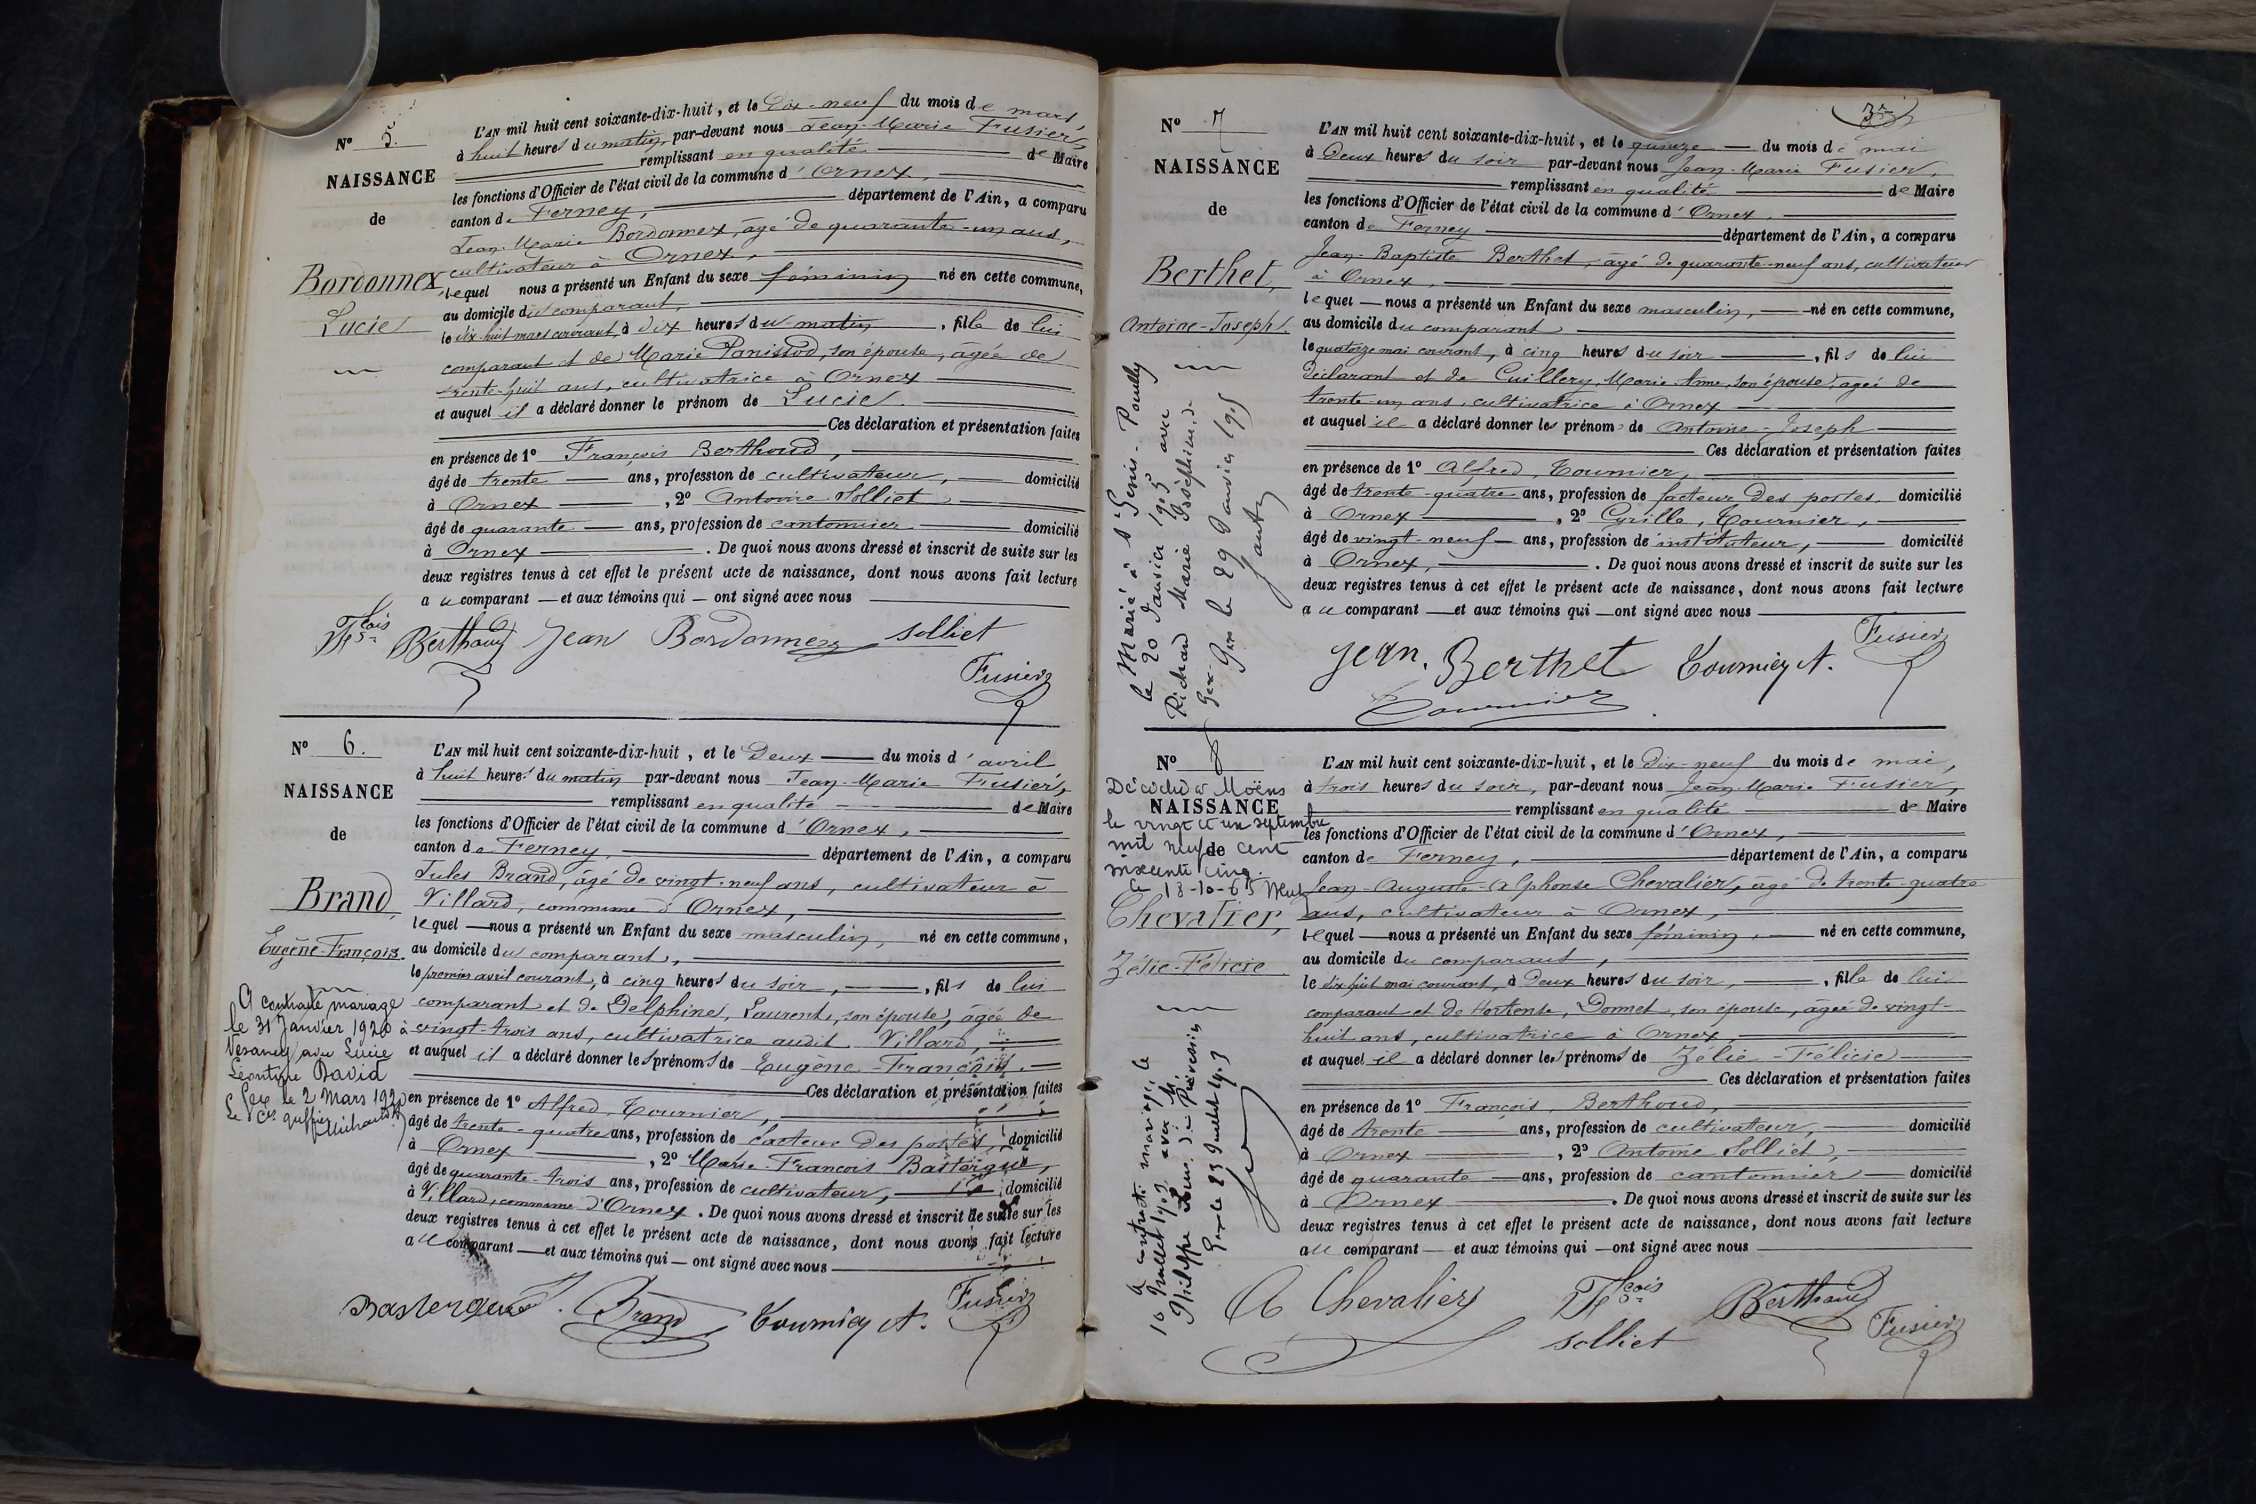 N° 5.
NAISSANCE
de
Bordonnex
Lucie
L'AN mil huit cent soixante-dix-huit, et le Dix-neuf du mois de mars,
à huit heures du matin, par-devant nous Jean-Marie Fusier,
remplissant en qualité de Maire
les fonctions d'Officier de l'état civil de la commune d'Ornex,
canton de Ferney, département de l'Ain, a comparu
Jean-Marie Bordonnex, âgé de quarante-un ans,
cultivateur à Ornex,
lequel nous a présenté un Enfant du sexe féminin né en cette commune,
au domicile du comparant,
le dix-huit mars courant, à dix heures du matin, fille de lui
comparant et de Marie Panissod, son épouse, âgée de
trente-huit ans, cultivatrice à Ornex
et auquel il a déclaré donner le prénom de Lucie
Ces déclaration et présentation faites
en présence de 1° François Berthoud,
âgé de trente ans, profession de cultivateur, domicilié
à Ornex, 2° Antoine Solliet
âgé de quarante ans, profession de cantonnier domicilié
à Ornex. De quoi nous avons dressé et inscrit de suite sur les
deux registres tenus à cet effet le présent acte de naissance, dont nous avons fait lecture
au comparant et aux témoins qui ont signé avec nous
Fçois Berthoud Jean Bordonnex Solliet
Fusier
N° 6.
NAISSANCE
de
Brand,
Eugène-François.
A contracté mariage
le 31 Janvier 1920 à
Vesancy avec Lucie
Léontine David
Gex le 2 Mars 1920
Le Cis greffier
L'AN mil huit cent soixante-dix-huit, et le Deux du mois d'avril
à huit heures du matin par-devant nous Jean-Marie Fusier,
remplissant en qualité de Maire
les fonctions d'Officier de l'état civil de la commune d'Ornex,
canton de Ferney, département de l'Ain, a comparu
Jules Brand, âgé de vingt-neuf ans, cultivateur à
Villard, commune d'Ornex,
lequel nous a présenté un Enfant du sexe masculin, né en cette commune,
au domicile du comparant,
le premier avril courant, à cinq heures du soir, fils de lui
comparant et de Delphine, Laurent, son épouse, âgée de
vingt-trois ans, cultivatrice audit Villard,
et auquel il a déclaré donner les prénoms de Eugène-François.
Ces déclaration et présentation faites
en présence de 1° Alfred, Tournier,
âgé de trente-quatre ans, profession de facteur des postes, domicilié
à Ornex, 2° Marie-François Basterque,
âgé de quarante-trois ans, profession de cultivateur, domicilié
à Villard, commune d'Ornex. De quoi nous avons dressé et inscrit de suite sur les
deux registres tenus à cet effet le présent acte de naissance, dont nous avons fait lecture
au comparant et aux témoins qui ont signé avec nous
Basterque J. Brand Tournier A. Fusier
37
N° 7
NAISSANCE
de
Berthet,
Antoine-Joseph.
Marié à St Genis-Pouilly
le 20 Janvier 1905 avec
Richard Marie Joséphine
Gex le 29 Janvier 1905
L'AN mil huit cent soixante-dix-huit, et le quinze du mois de mai
à Deux heures du soir par-devant nous Jean-Marie Fusier,
remplissant en qualité de Maire
les fonctions d'Officier de l'état civil de la commune d'Ornex,
canton de Ferney département de l'Ain, a comparu
Jean-Baptiste Berthet, âgé de quarante-neuf ans, cultivateur
à Ornex,
lequel nous a présenté un Enfant du sexe masculin, né en cette commune,
au domicile du comparant
le quatorze mai courant, à cinq heures du soir, fils de lui
déclarant et de Cuillery, Marie-Anne, son épouse, âgée de
trente-un ans, cultivatrice à Ornex
et auquel il a déclaré donner les prénoms de Antoine-Joseph
Ces déclaration et présentation faites
en présence de 1° Alfred, Tournier,
âgé de trente-quatre ans, profession de facteur des postes, domicilié
à Ornex, 2° Cyrille, Tournier,
âgé de vingt-neuf ans, profession de instituteur, domicilié
à Ornex,. De quoi nous avons dressé et inscrit de suite sur les
deux registres tenus à cet effet le présent acte de naissance, dont nous avons fait lecture
au comparant et aux témoins qui ont signé avec nous
Jean. Berthet Tournier A. Fusier
Tournier
N° 8
Décédée à Moëns
NAISSANCE
le vingt et un septembre
mil neuf cent
de
soixante cinq.
Le 18-10-65
Chevalier,
Zélie-Félicie
A contracté mariage le
10 Juillet 1909 avec
Philippe Louis
Gex le 23 Juillet 1909
L'AN mil huit cent soixante-dix-huit, et le dix-neuf du mois de mai,
à trois heures du soir, par-devant nous Jean-Marie Fusier,
remplissant en qualité de Maire
les fonctions d'Officier de l'état civil de la commune d'Ornex,
canton de Ferney, département de l'Ain, a comparu
Jean-Auguste-Alphonse Chevalier, âgé de trente-quatre
ans, cultivateur à Ornex,
lequel nous a présenté un Enfant du sexe féminin, né en cette commune,
au domicile du comparant,
le dix-huit mai courant, à Deux heures du soir, fille de lui
comparant et de Hortense, Domet, son épouse, âgée de vingt-
huit ans, cultivatrice à Ornex,
et auquel il a déclaré donner les prénoms de Zélie-Félicie
Ces déclaration et présentation faites
en présence de 1° François, Berthoud,
âgé de trente ans, profession de cultivateur, domicilié
à Ornex, 2° Antoine Solliet,
âgé de quarante ans, profession de cantonnier domicilié
à Ornex. De quoi nous avons dressé et inscrit de suite sur les
deux registres tenus à cet effet le présent acte de naissance, dont nous avons fait lecture
au comparant et aux témoins qui ont signé avec nous
A Chevalier Fçois Berthoud
Solliet Fusier